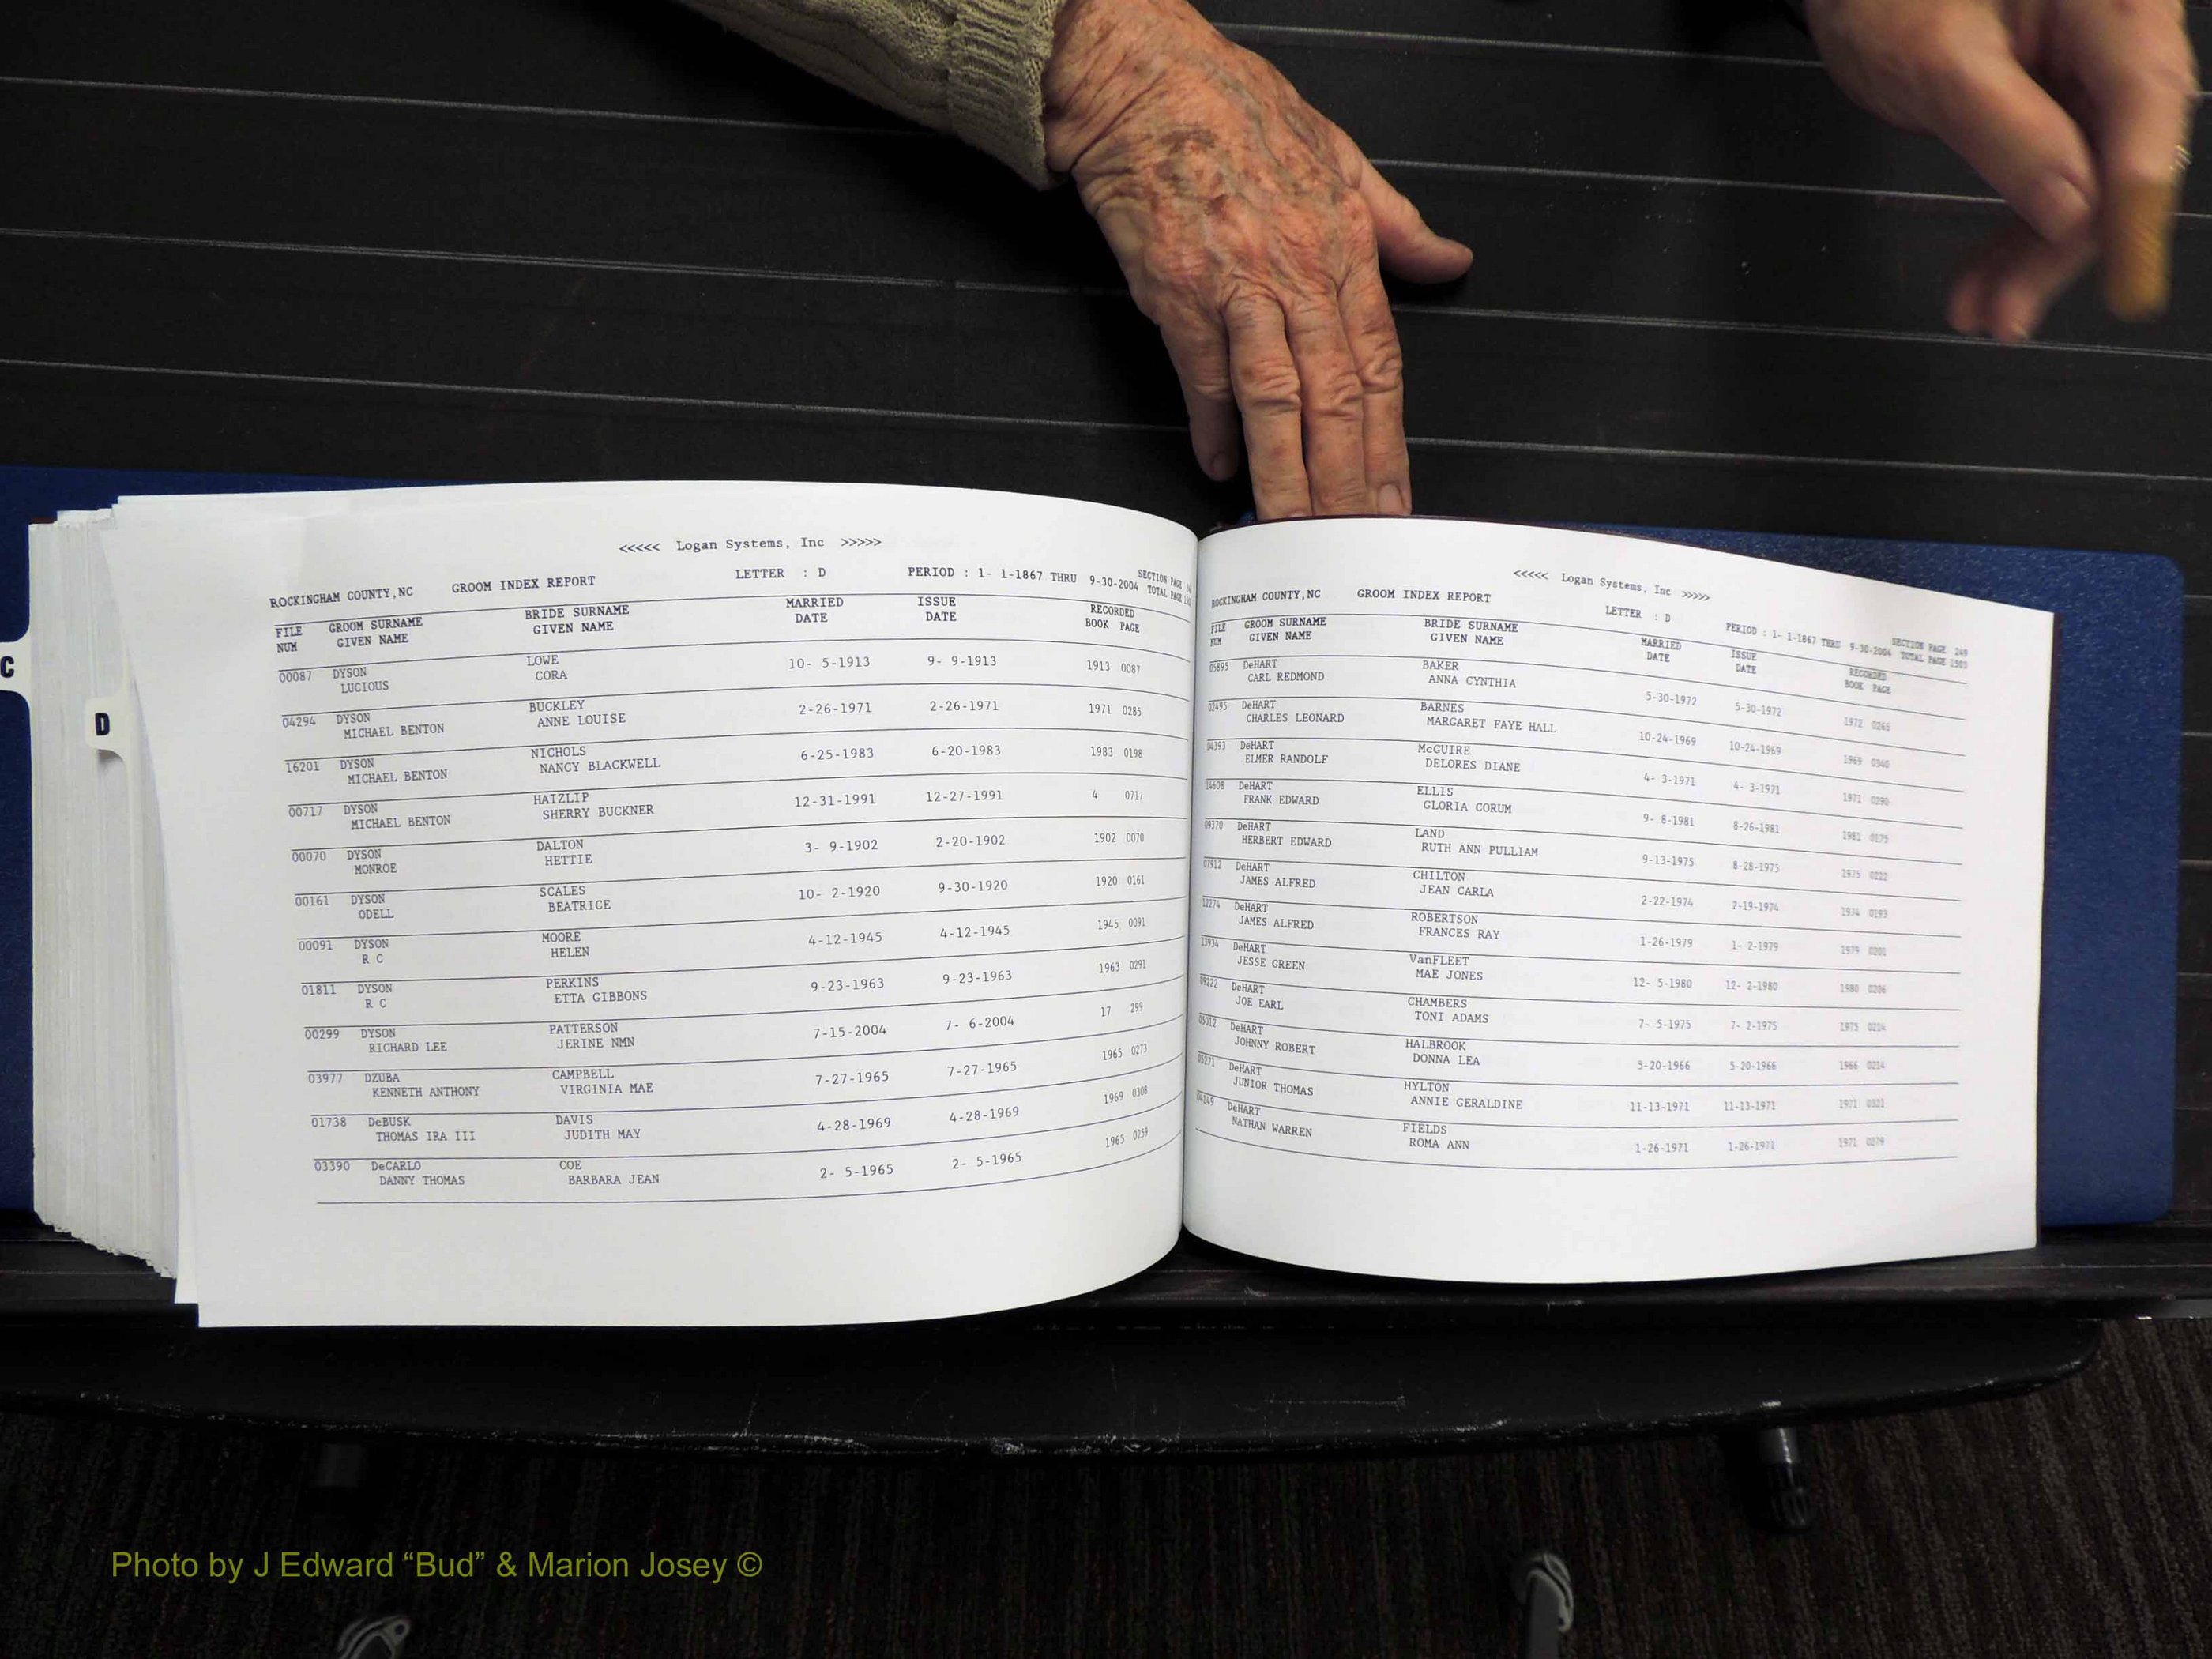 C
D
<<<<< Logan Systems, Inc >>>>>
ROCKINGHAM COUNTY,NC GROOM INDEX REPORT LETTER : D PERIOD : 1- 1-1867 THRU 9-30-2004 SECTION PAGE
TOTAL PAGE
FILE GROOM SURNAME BRIDE SURNAME MARRIED ISSUE RECORDED
NUM GIVEN NAME GIVEN NAME DATE DATE BOOK PAGE
00087 DYSON LOWE 10- 5-1913 9- 9-1913 1913 0087
LUCIOUS CORA
04294 DYSON BUCKLEY 2-26-1971 2-26-1971 1971 0285
MICHAEL BENTON ANNE LOUISE
16201 DYSON NICHOLS 6-25-1983 6-20-1983 1983 0198
MICHAEL BENTON NANCY BLACKWELL
00717 DYSON HAIZLIP 12-31-1991 12-27-1991 4 0717
MICHAEL BENTON SHERRY BUCKNER
00070 DYSON DALTON 3- 9-1902 2-20-1902 1902 0070
MONROE HETTIE
00161 DYSON SCALES 10- 2-1920 9-30-1920 1920 0161
ODELL BEATRICE
00091 DYSON MOORE 4-12-1945 4-12-1945 1945 0091
R C HELEN
01811 DYSON PERKINS 9-23-1963 9-23-1963 1963 0291
R C ETTA GIBBONS
00299 DYSON PATTERSON 7-15-2004 7- 6-2004 17 299
RICHARD LEE JERINE NMN
03977 DZUBA CAMPBELL 7-27-1965 7-27-1965 1965 0273
KENNETH ANTHONY VIRGINIA MAE
01738 DeBUSK DAVIS 4-28-1969 4-28-1969 1969 0308
THOMAS IRA III JUDITH MAY
03390 DeCARLO COE 2- 5-1965 2- 5-1965 1965 0259
DANNY THOMAS BARBARA JEAN
<<<<< Logan Systems, Inc >>>>>
ROCKINGHAM COUNTY,NC GROOM INDEX REPORT LETTER : D PERIOD : 1- 1-1867 THRU 9-30-2004 SECTION PAGE 249
TOTAL PAGE 1503
FILE GROOM SURNAME BRIDE SURNAME MARRIED ISSUE RECORDED
NUM GIVEN NAME GIVEN NAME DATE DATE BOOK PAGE
05895 DeHART BAKER 5-30-1972 5-30-1972 1972 0265
CARL REDMOND ANNA CYNTHIA
02495 DeHART BARNES 10-24-1969 10-24-1969 1969 0340
CHARLES LEONARD MARGARET FAYE HALL
04393 DeHART McGUIRE 4- 3-1971 4- 3-1971 1971 0290
ELMER RANDOLF DELORES DIANE
14608 DeHART ELLIS 9- 8-1981 8-26-1981 1981 0175
FRANK EDWARD GLORIA CORUM
09370 DeHART LAND 9-13-1975 8-28-1975 1975 0222
HERBERT EDWARD RUTH ANN PULLIAM
07912 DeHART CHILTON 2-22-1974 2-19-1974 1974 0193
JAMES ALFRED JEAN CARLA
12274 DeHART ROBERTSON 1-26-1979 1- 2-1979 1979 0201
JAMES ALFRED FRANCES RAY
13934 DeHART VanFLEET 12- 5-1980 12- 2-1980 1980 0206
JESSE GREEN MAE JONES
09222 DeHART CHAMBERS 7- 5-1975 7- 2-1975 1975 0224
JOE EARL TONI ADAMS
05012 DeHART HALBROOK 5-20-1966 5-20-1966 1966 0214
JOHNNY ROBERT DONNA LEA
05271 DeHART HYLTON 11-13-1971 11-13-1971 1971 0321
JUNIOR THOMAS ANNIE GERALDINE
04149 DeHART FIELDS 1-26-1971 1-26-1971 1971 0279
NATHAN WARREN ROMA ANN
Photo by J Edward “Bud” & Marion Josey ©